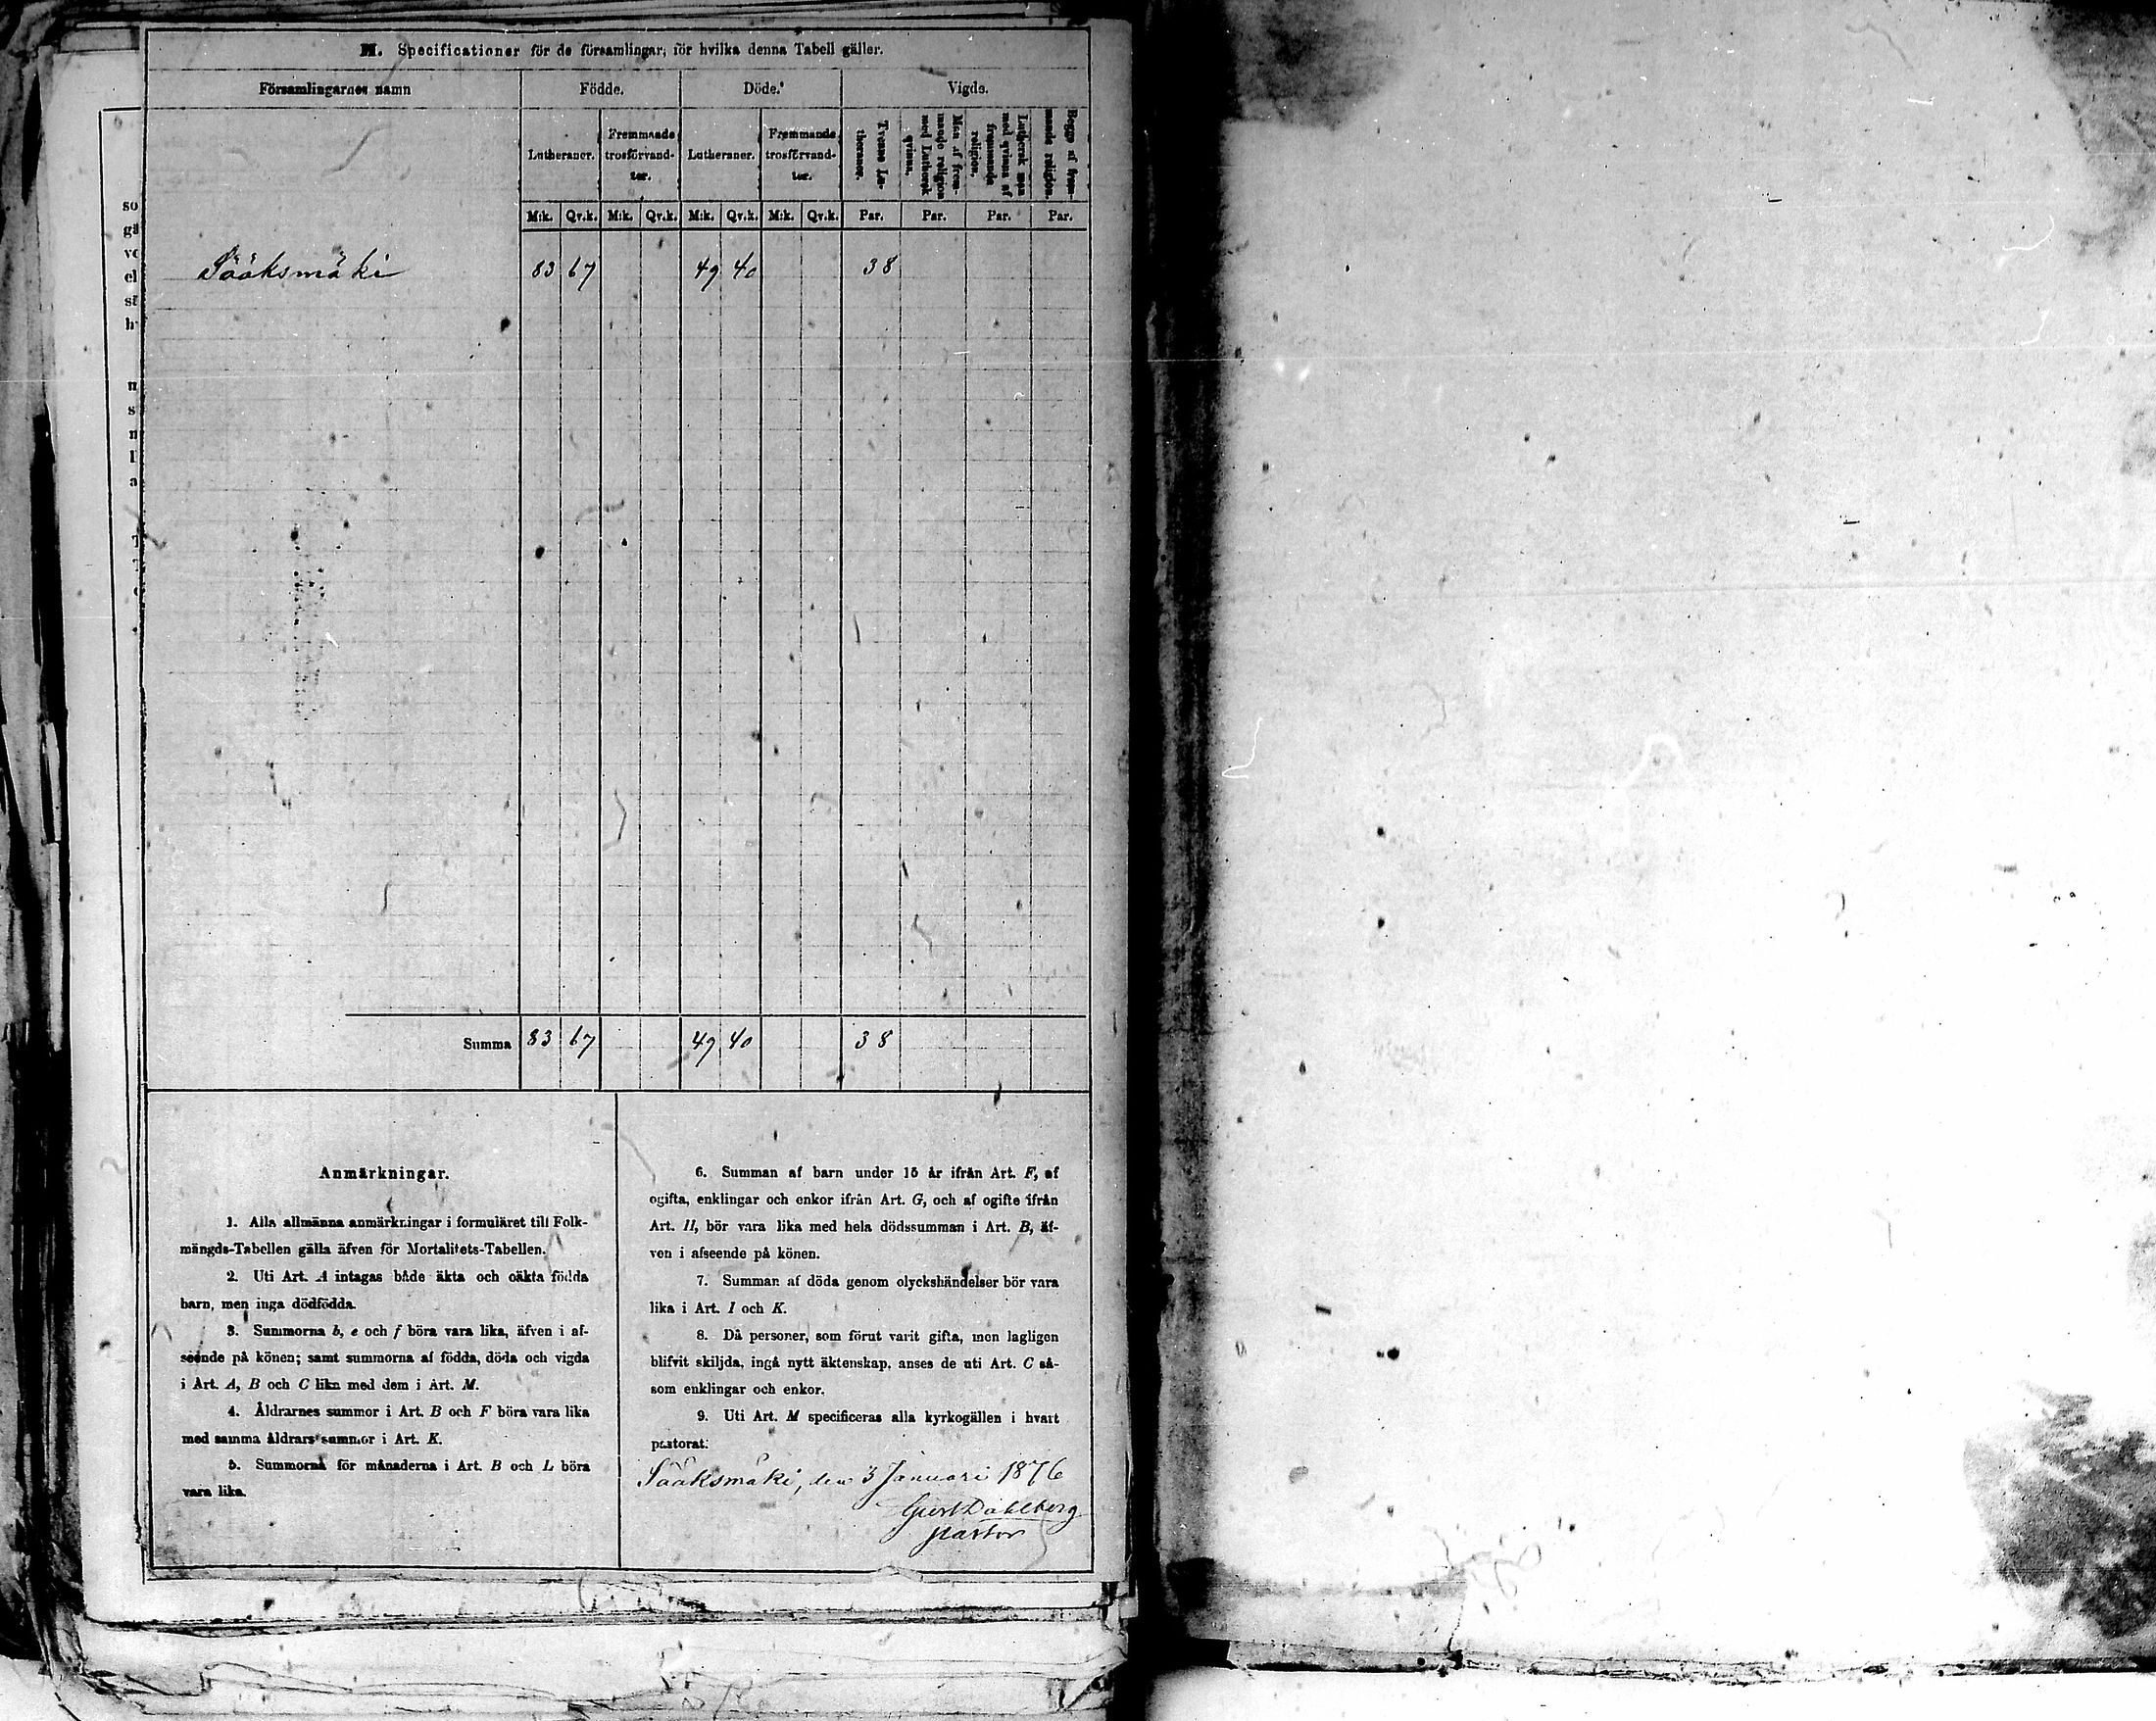 M. Specificationer för de församlingar, för hvilka denna Tabell gäller.
Församlingarnes namn
Födde.
Döde.
Vigde.
Lutheraner.
Fremmande
trosförvand-
ter.
Lutheraner.
Fremmande
trosförvand-
ter.
Tvenne Lu-
theraner.
Man af frem-
mande religion
med Luthersk
qvinna.
Luthersk man
med qvinna af
fremmande
religion.
Begge af frem-
mande religion.
M.k. Qv.k. M.k. Qv.k. M.k. Qv.k. M.k. Qv.k. Par. Par. Par. Par.
Sääksmäki 83 67 49 40 38
Summa 83 67 49 40 38
Anmärkningar.
1. Alla allmänna anmärkningar i formuläret till Folk-
mängds-Tabellen gälla äfven för Mortalitets-Tabellen.
2. Uti Art. A intagas både äkta och oäkta födda
barn, men inga dödfödda.
3. Summorna b, e och f böra vara lika, äfven i af-
seende på könen; samt summorna af födda, döda och vigda
i Art. A, B och C lika med dem i Art. M.
4. Åldrarnes summor i Art. B och F böra vara lika
med samma åldrars summor i Art. K.
5. Summorna för månaderna i Art. B och L böra
vara lika.
6. Summan af barn under 15 år ifrån Art. F, af
ogifta, enklingar och enkor ifrån Art. G, och af ogifte ifrån
Art. H, bör vara lika med hela dödssumman i Art. B, äf-
ven i afseende på könen.
7. Summan af döda genom olyckshändelser bör vara
lika i Art. I och K.
8. Då personer, som förut varit gifta, men lagligen
blifvit skiljda, ingå nytt äktenskap, anses de uti Art. C så-
som enklingar och enkor.
9. Uti Art. M specificeras alla kyrkogällen i hvart
pastorat.
Sääksmäki, den 3 Januari 1876
Gust Dahlberg
Pastor